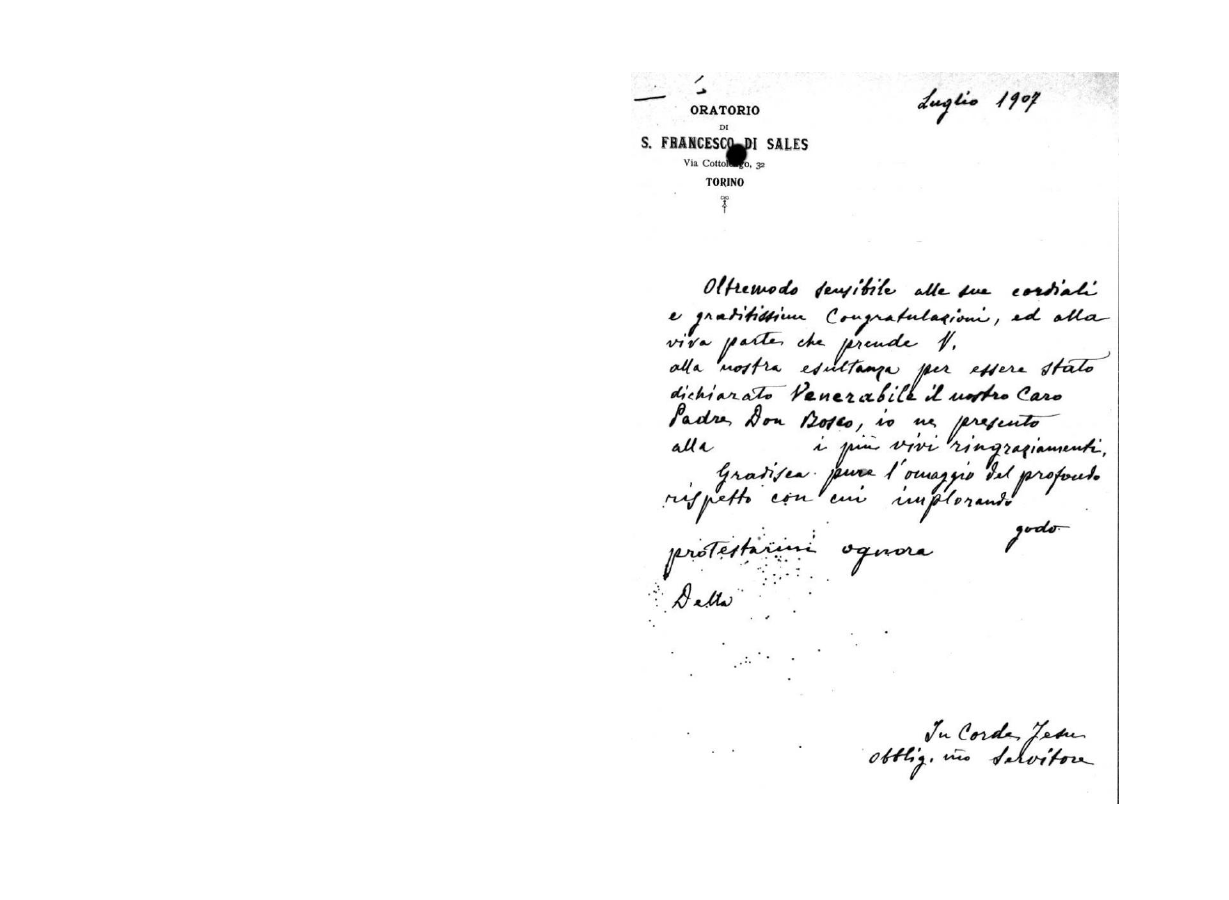 Luglio 1907
ORATORIO
DI
S. FRANCESCO DI SALES
Via Cottolengo, 32
TORINO
Oltremodo sensibile alle sue cordiali
e graditissime Congratulazioni, ed alla
viva parte che prende V.
alla nostra esultanza per essere stato
dichiarato Venerabile il nostro Caro
Padre Don Bosco, io ne presento
alla i più vivi ringraziamenti,
Gradisca pure l'omaggio del profondo
rispetto con cui implorando
godo
protestarmi ognora
Della
In Corde Jesu
Obblig.mo Servitore